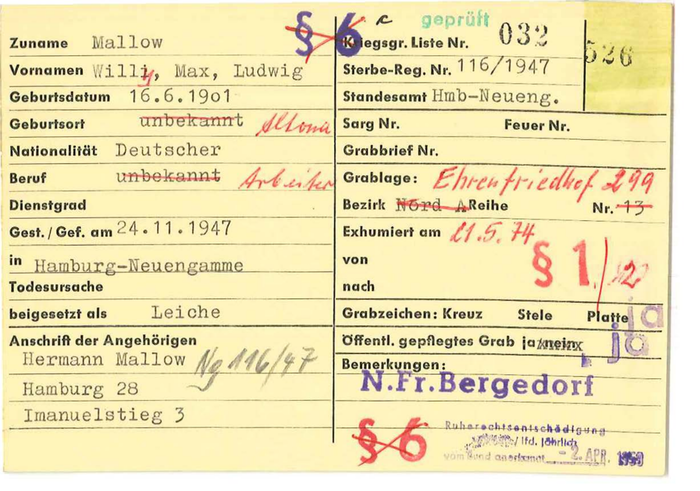 § 6 c geprüft
Zuname Mallow
Vornamen Willy, Max, Ludwig
Geburtsdatum 16.6.1901
Geburtsort unbekannt Altona
Nationalität Deutscher
Beruf unbekannt Arbeiter
Dienstgrad
Gest./Gef. am 24.11.1947
in Hamburg-Neuengamme
Todesursache
beigesetzt als Leiche
Anschrift der Angehörigen
Hermann Mallow Ng 116/47
Hamburg 28
Imanuelstieg 3
Kriegsgr. Liste Nr. 032 526
Sterbe-Reg. Nr. 116/1947
Standesamt Hmb-Neueng.
Sarg Nr. Feuer Nr.
Grabbrief Nr.
Grablage: Ehrenfriedhof 299
Bezirk Nord A Reihe Nr. 13
Exhumiert am 21.5.74
von § 1/
nach
Grabzeichen: Kreuz Stele Platte ja
Öffentl. gepflegtes Grab ja/nein ja
Bemerkungen:
N.Fr.Bergedorf
§ 6
Ruherechtsentschädigung
/ lfd. jährlich
vom Bund anerkannt - 2. APR.